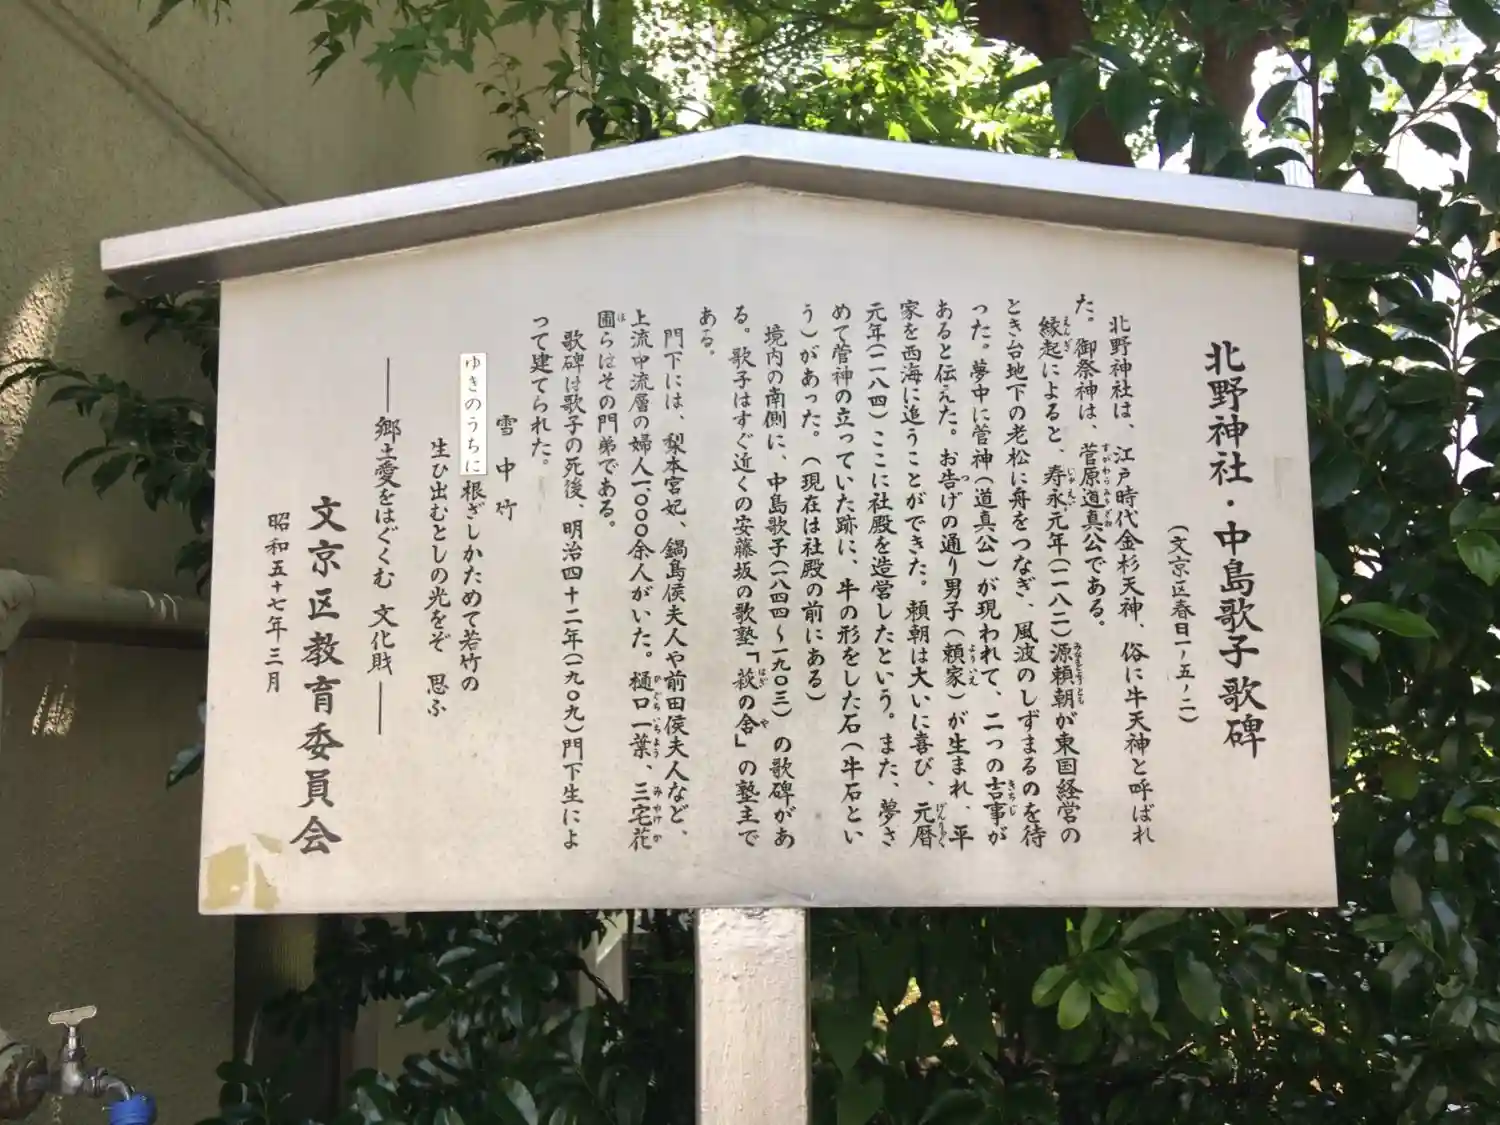 北野神社・中島歌子歌碑
（文京区春日一ノ五ノ二）
北野神社は、江戸時代金杉天神、俗に牛天神と呼ばれ
た。御祭神は、菅原道真公である。
縁起によると、寿永元年（一一八二）源頼朝が東国経営の
とき台地下の老松に舟をつなぎ、風波のしずまるのを待
った。夢中に菅神（道真公）が現われて、二つの吉事が
あると伝えた。お告げの通り男子（頼家）が生まれ、平
家を西海に追うことができた。頼朝は大いに喜び、元暦
元年（一一八四）ここに社殿を造営したという。また、夢さ
めて菅神の立っていた跡に、牛の形をした石（牛石とい
う）があった。（現在は社殿の前にある）
境内の南側に、中島歌子（一八四四～一九〇三）の歌碑があ
る。歌子はすぐ近くの安藤坂の歌塾「萩の舎」の塾主で
ある。
門下には、梨本宮妃、鍋島侯夫人や前田侯夫人など、
上流中流層の婦人一、〇〇〇余人がいた。樋口一葉、三宅花
圃らはその門弟である。
歌碑は歌子の死後、明治四十二年（一九〇九）門下生によ
って建てられた。
雪中竹
ゆきのうちに根ざしかためて若竹の
生ひ出むとしの光をぞ思ふ
――郷土愛をはぐくむ 文化財――
文京区教育委員会
昭和五十七年三月